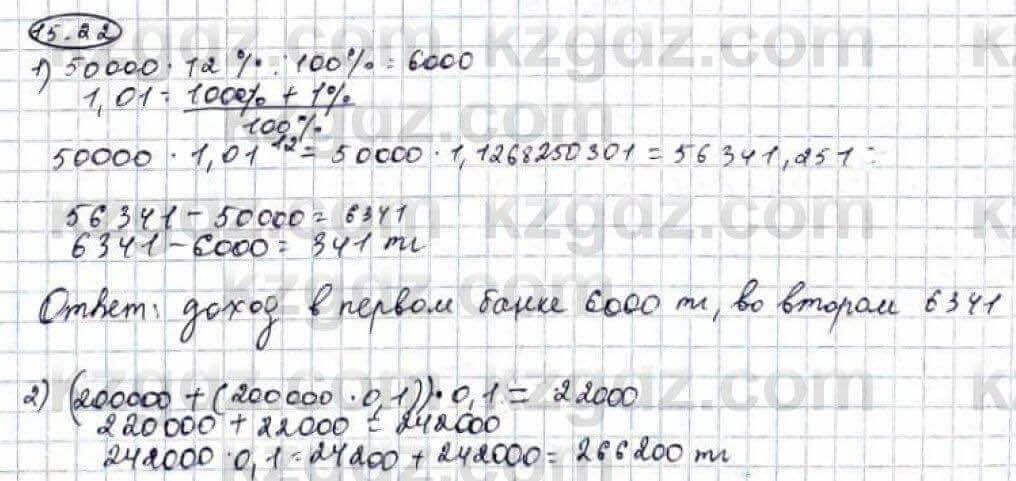 15.22
1) 50000 · 12 % : 100% = 6000
1,01 = 100% + 1%
100%
50000 · 1,01¹² = 50000 · 1,1268250301 = 56341,251 =
56341 - 50000 = 6341
6341 - 6000 = 341 тг
Ответ: доход в первом банке 6000 тг, во втором 6341
2) (200000 + (200000 · 0,1)) · 0,1 = 22000
220000 + 22000 = 242000
242000 · 0,1 = 24200 + 242000 = 266200 тг
kzgdz.com